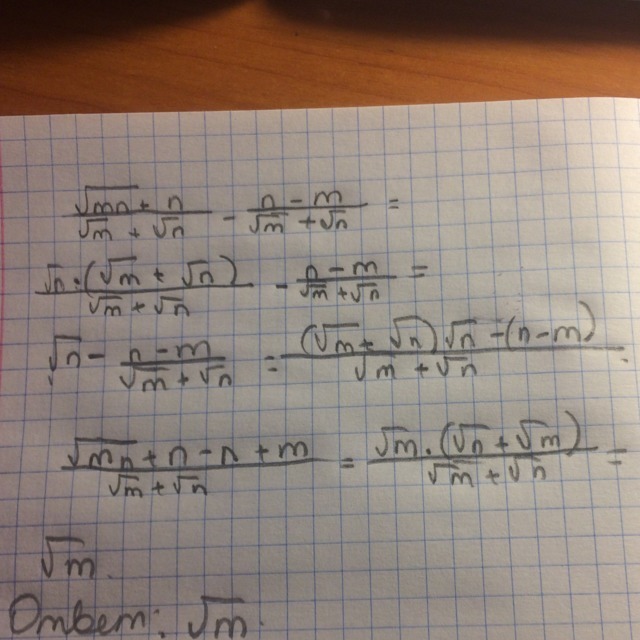 (√(mn) + n)/(√m + √n) - (n - m)/(√m + √n) =
(√n · (√m + √n))/(√m + √n) - (n - m)/(√m + √n) =
√n - (n - m)/(√m + √n) = ((√m + √n)√n - (n - m))/(√m + √n) =
(√(mn) + n - n + m)/(√m + √n) = (√m · (√n + √m))/(√m + √n) =
√m.
Ответ: √m.